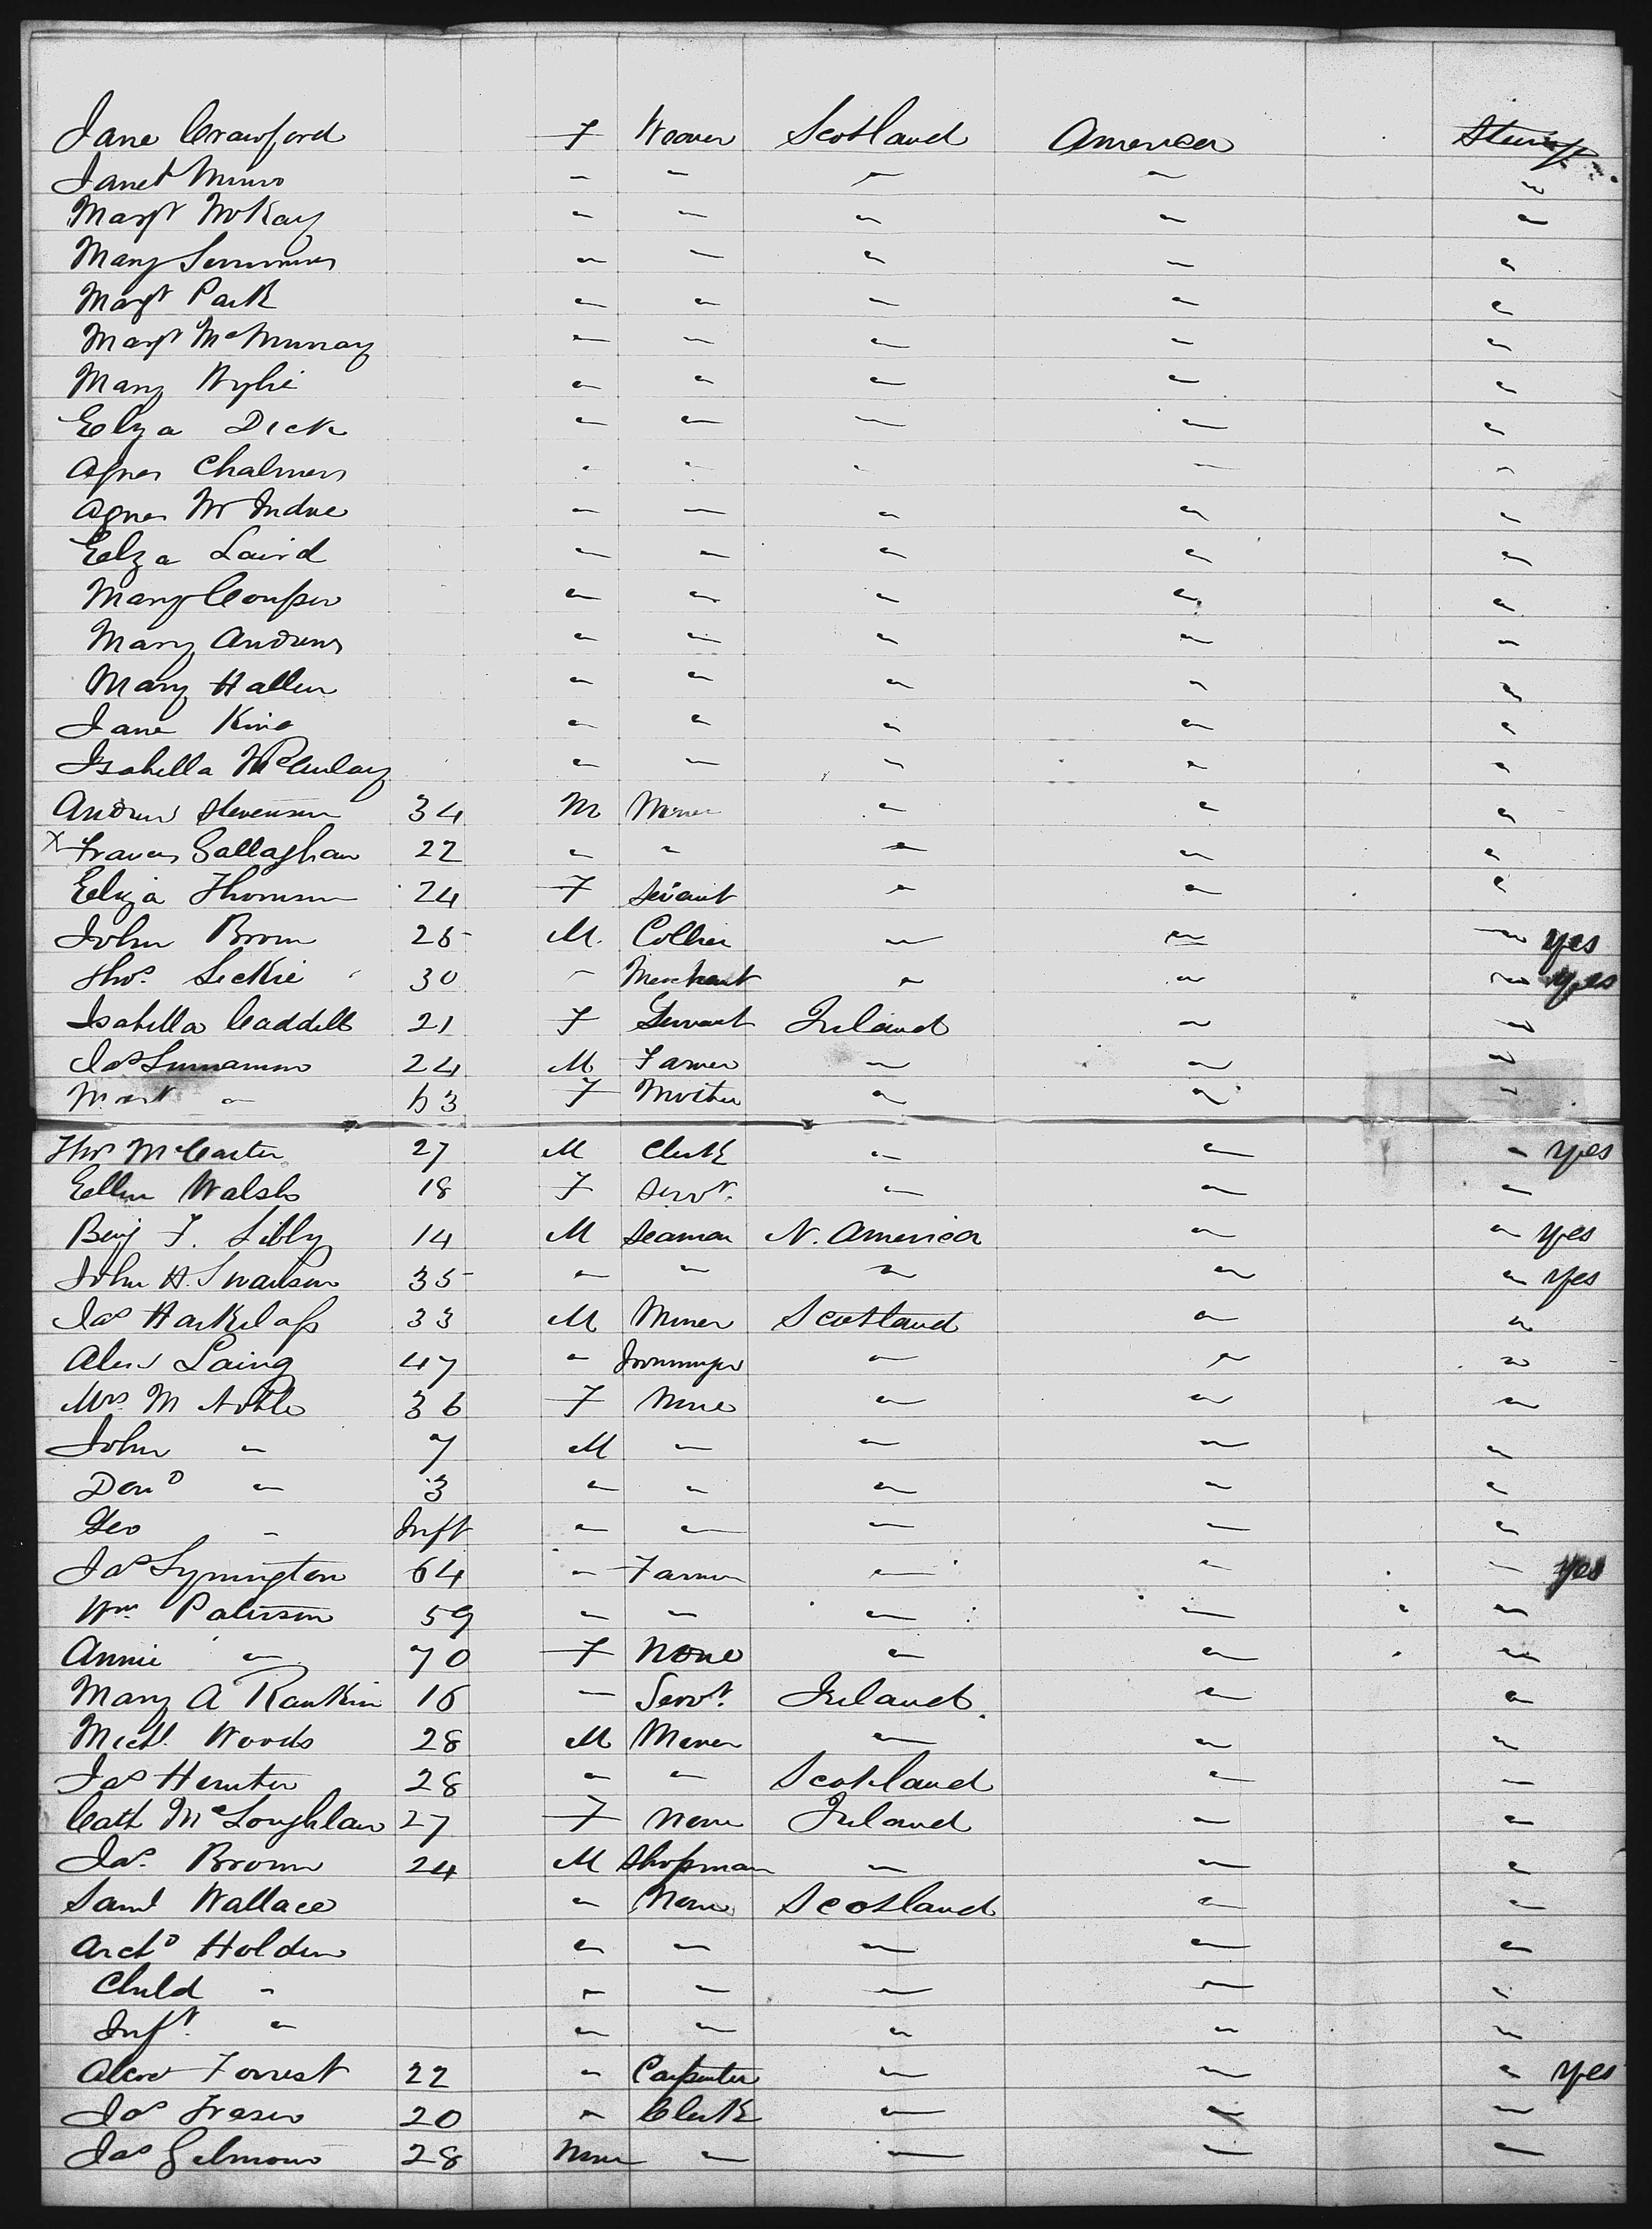 Jane Crawford F Weaver Scotland America
Janet Munro " " " " "
Margt McKay " " " " "
Mary Simmons " " " " "
Margt Park " " " " "
Margt McMurray " " " " "
Mary Wylie " " " " "
Eliza Dick " " " " "
Agnes Chalmers " " " " "
Agnes " " " " "
Eliza Laird " " " " "
Mary Couper " " " " "
Mary Andrews " " " " "
Mary Hallen " " " " "
Jane King " " " " "
Isabella McAulay " " " " "
Andrew Stevenson 34 M Miner " " "
x Frances Gallaghan 22 " " " " "
Eliza Thomson 24 F Servant " " "
John Brown 25 M. Collier " " " yes
Thos. Leckie 30 " Merchant " " " yes
Isabella Caddell 21 F Servant Ireland " "
Jas 24 M Farmer " " "
" 63 F Mother " " "
Thos McCarter 27 M Clerk " " " yes
Ellen Walsh 18 F Servt. " " "
Benj F. Libby 14 M Seaman N. America " " yes
John H. Swanson 35 " " " " " yes
Jas Harkelass 33 M Miner Scotland " "
Alexr Laing 47 " Ironmonger " " "
Mrs. M Noble 36 F None " " "
John " 7 M " " " "
Dond " 3 " " " " "
Geo " Inft " " " " "
Jas Symington 64 " Farmer " " " yes
Wm Paterson 59 " " " " "
Annie " 70 F None " " "
Mary A Rankin 16 " Servt. Ireland " "
Michl. Woods 28 M Miner " " "
Jas Hunter 28 " " Scotland " "
Cath McLoughlan 27 F None Ireland " "
Jas. Brown 24 M Shopman " " "
Saml Wallace " None Scotland " "
Archd Holden " " " " "
Child " " " " " "
Inft. " " " " " "
Alexr Forrest 22 " Carpenter " " " yes
Jas Fraser 20 " Clerk " " "
Jas Gilmour 28 " " " "